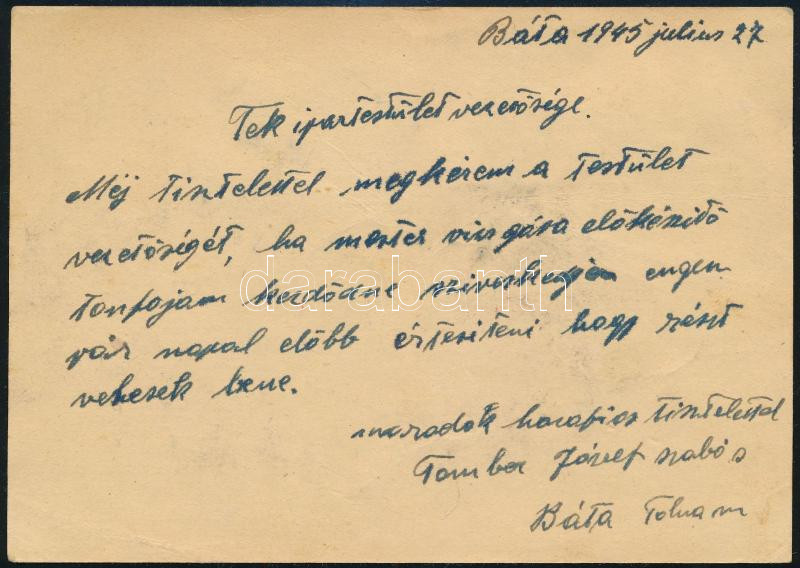 Báta 1945 julius 27
Tek ipartestület vezetősége.
Méj tisztelettel megkérem a testület
vezetőségét, ha mester vizsgára előkészitő
tanfojam kezdődne sziveskedjen engem
pár napal előbb értesiteni hogy részt
vehesek bene.
maradok hazafias tisztelettel
Tomber József szabó s
Báta Tolnam
darabanth